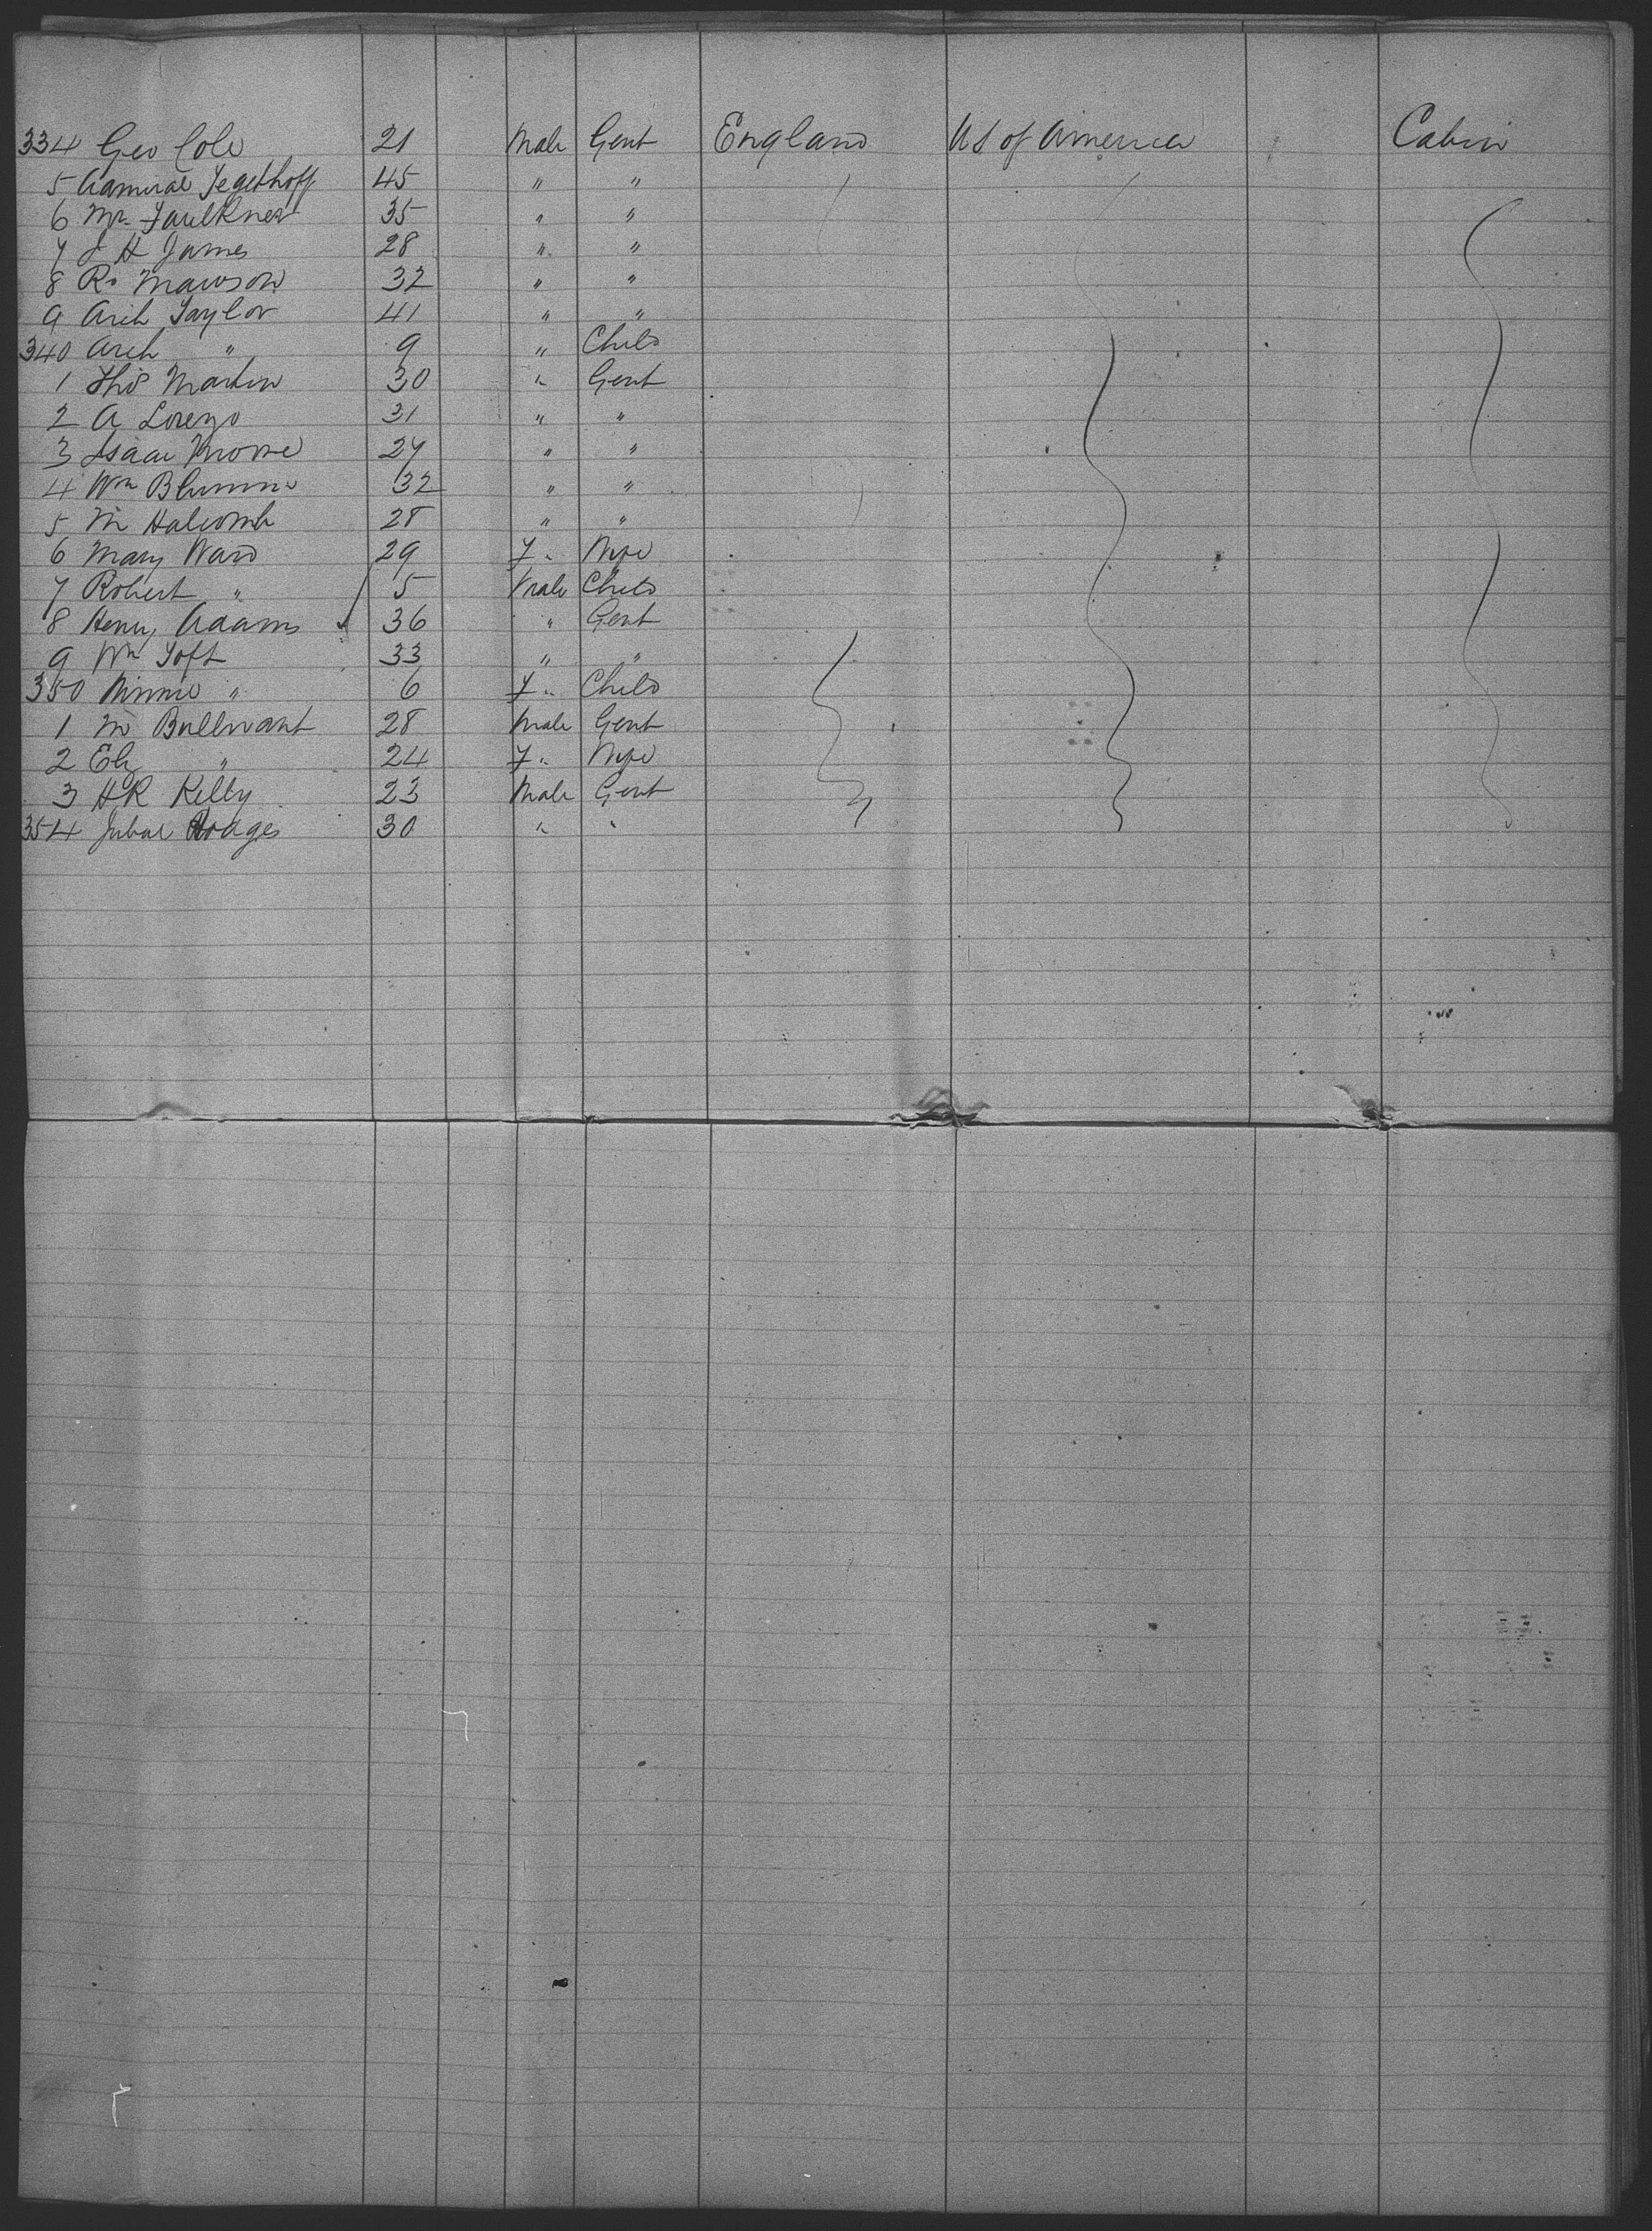 334 Geo Cole 21 Male Gent England US of America Cabin
5 Admiral Tegethoff 45 " "
6 Mr Faulkner 35 " "
7 J H James 28 " "
8 Ro Mawson 32 " "
9 Arch Taylor 41 " "
340 Arch " 9 " Child
1 Thos Martin 30 " Gent
2 A Lorenzo 31 " "
3 Isaac Moore 27 " "
4 Wm 32 " "
5 M Halcomb 28 " "
6 Mary Ward 29 F " Wife
7 Robert " 5 Male Child
8 Henry Adams 36 " Gent
9 Wm Toft 33 " "
350 Minnie " 6 F " Child
1 M Bullivant 28 Male Gent
2 Eliz " 24 F " Wife
3 H R Kelly 23 Male Gent
354 Jubal Hodges 30 " "